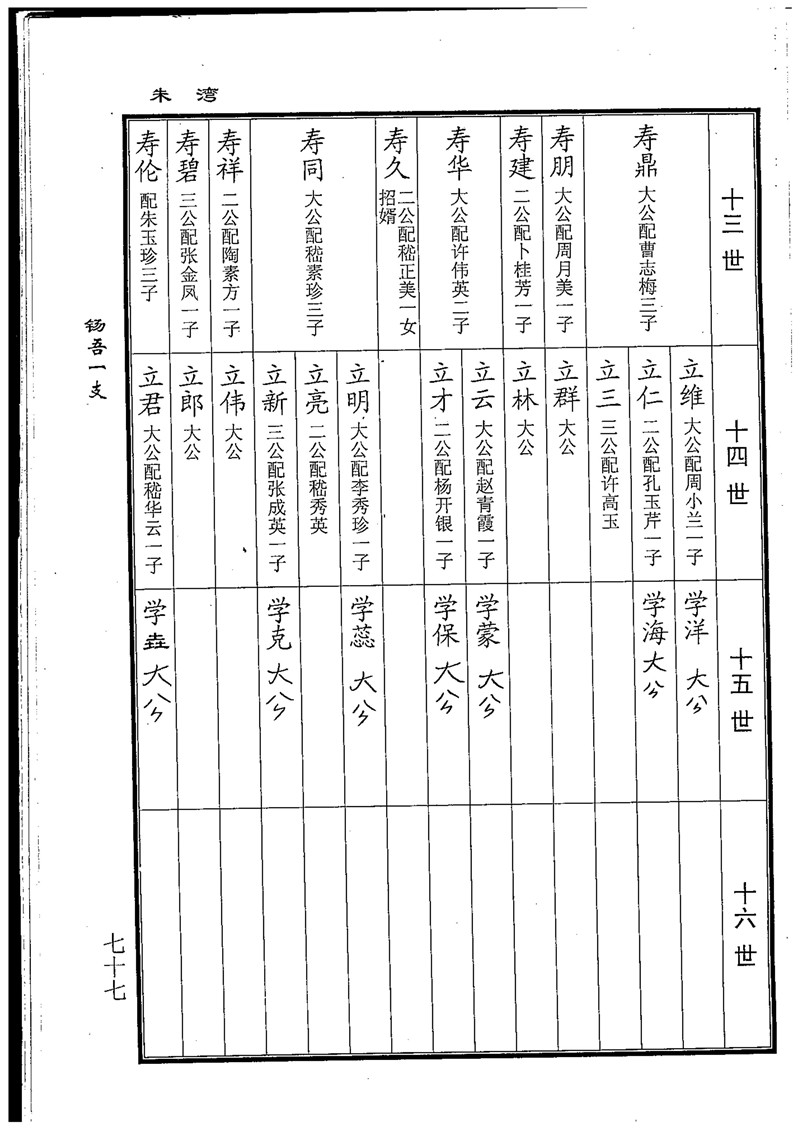 朱湾
十三世
寿鼎 大公配曹志梅三子
寿朋 大公配周月美一子
寿建 二公配卜桂芳一子
寿华 大公配许伟英二子
寿久 二公配嵇正美一女招婿
寿同 大公配嵇素珍三子
寿祥 二公配陶素方一子
寿碧 三公配张金凤一子
寿伦 配朱玉珍三子
十四世
立维 大公配周小兰一子
立仁 二公配孔玉芹一子
立三 三公配许高玉
立群 大公
立林 大公
立云 大公配赵青霞一子
立才 二公配杨开银一子
立明 大公配李秀珍一子
立亮 二公配嵇秀英
立新 三公配张成英一子
立伟 大公
立郎 大公
立君 大公配嵇华云一子
十五世
学洋 大公
学海 大公
学蒙 大公
学保 大公
学蕊 大公
学克 大公
学垚 大公
十六世
钖吾一支
七十七